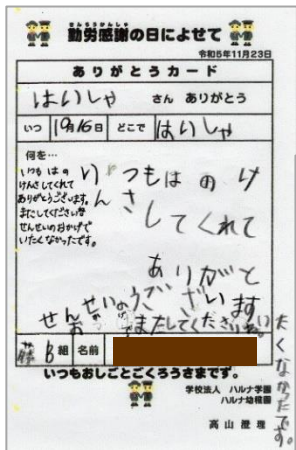 きんろうかんしゃ
勤労感謝の日によせて
令和5年11月23日
ありがとうカード
はいしゃ さん ありがとう
いつ 10月16日 どこで はいしゃ
何を…
いつもはの
けんさしてくれて
ありがとうございます。
またしてください
せんせいのおかげで
いたくなかったです。
いつもはのけ
んさ
してくれて
ありがと
うございます
またしてください。
せんせいの
お
たくなかったです。
藤 B組 名前
いつもおしごとごくろうさまです。
学校法人 ハルナ学園
ハルナ幼稚園
高山 澄理